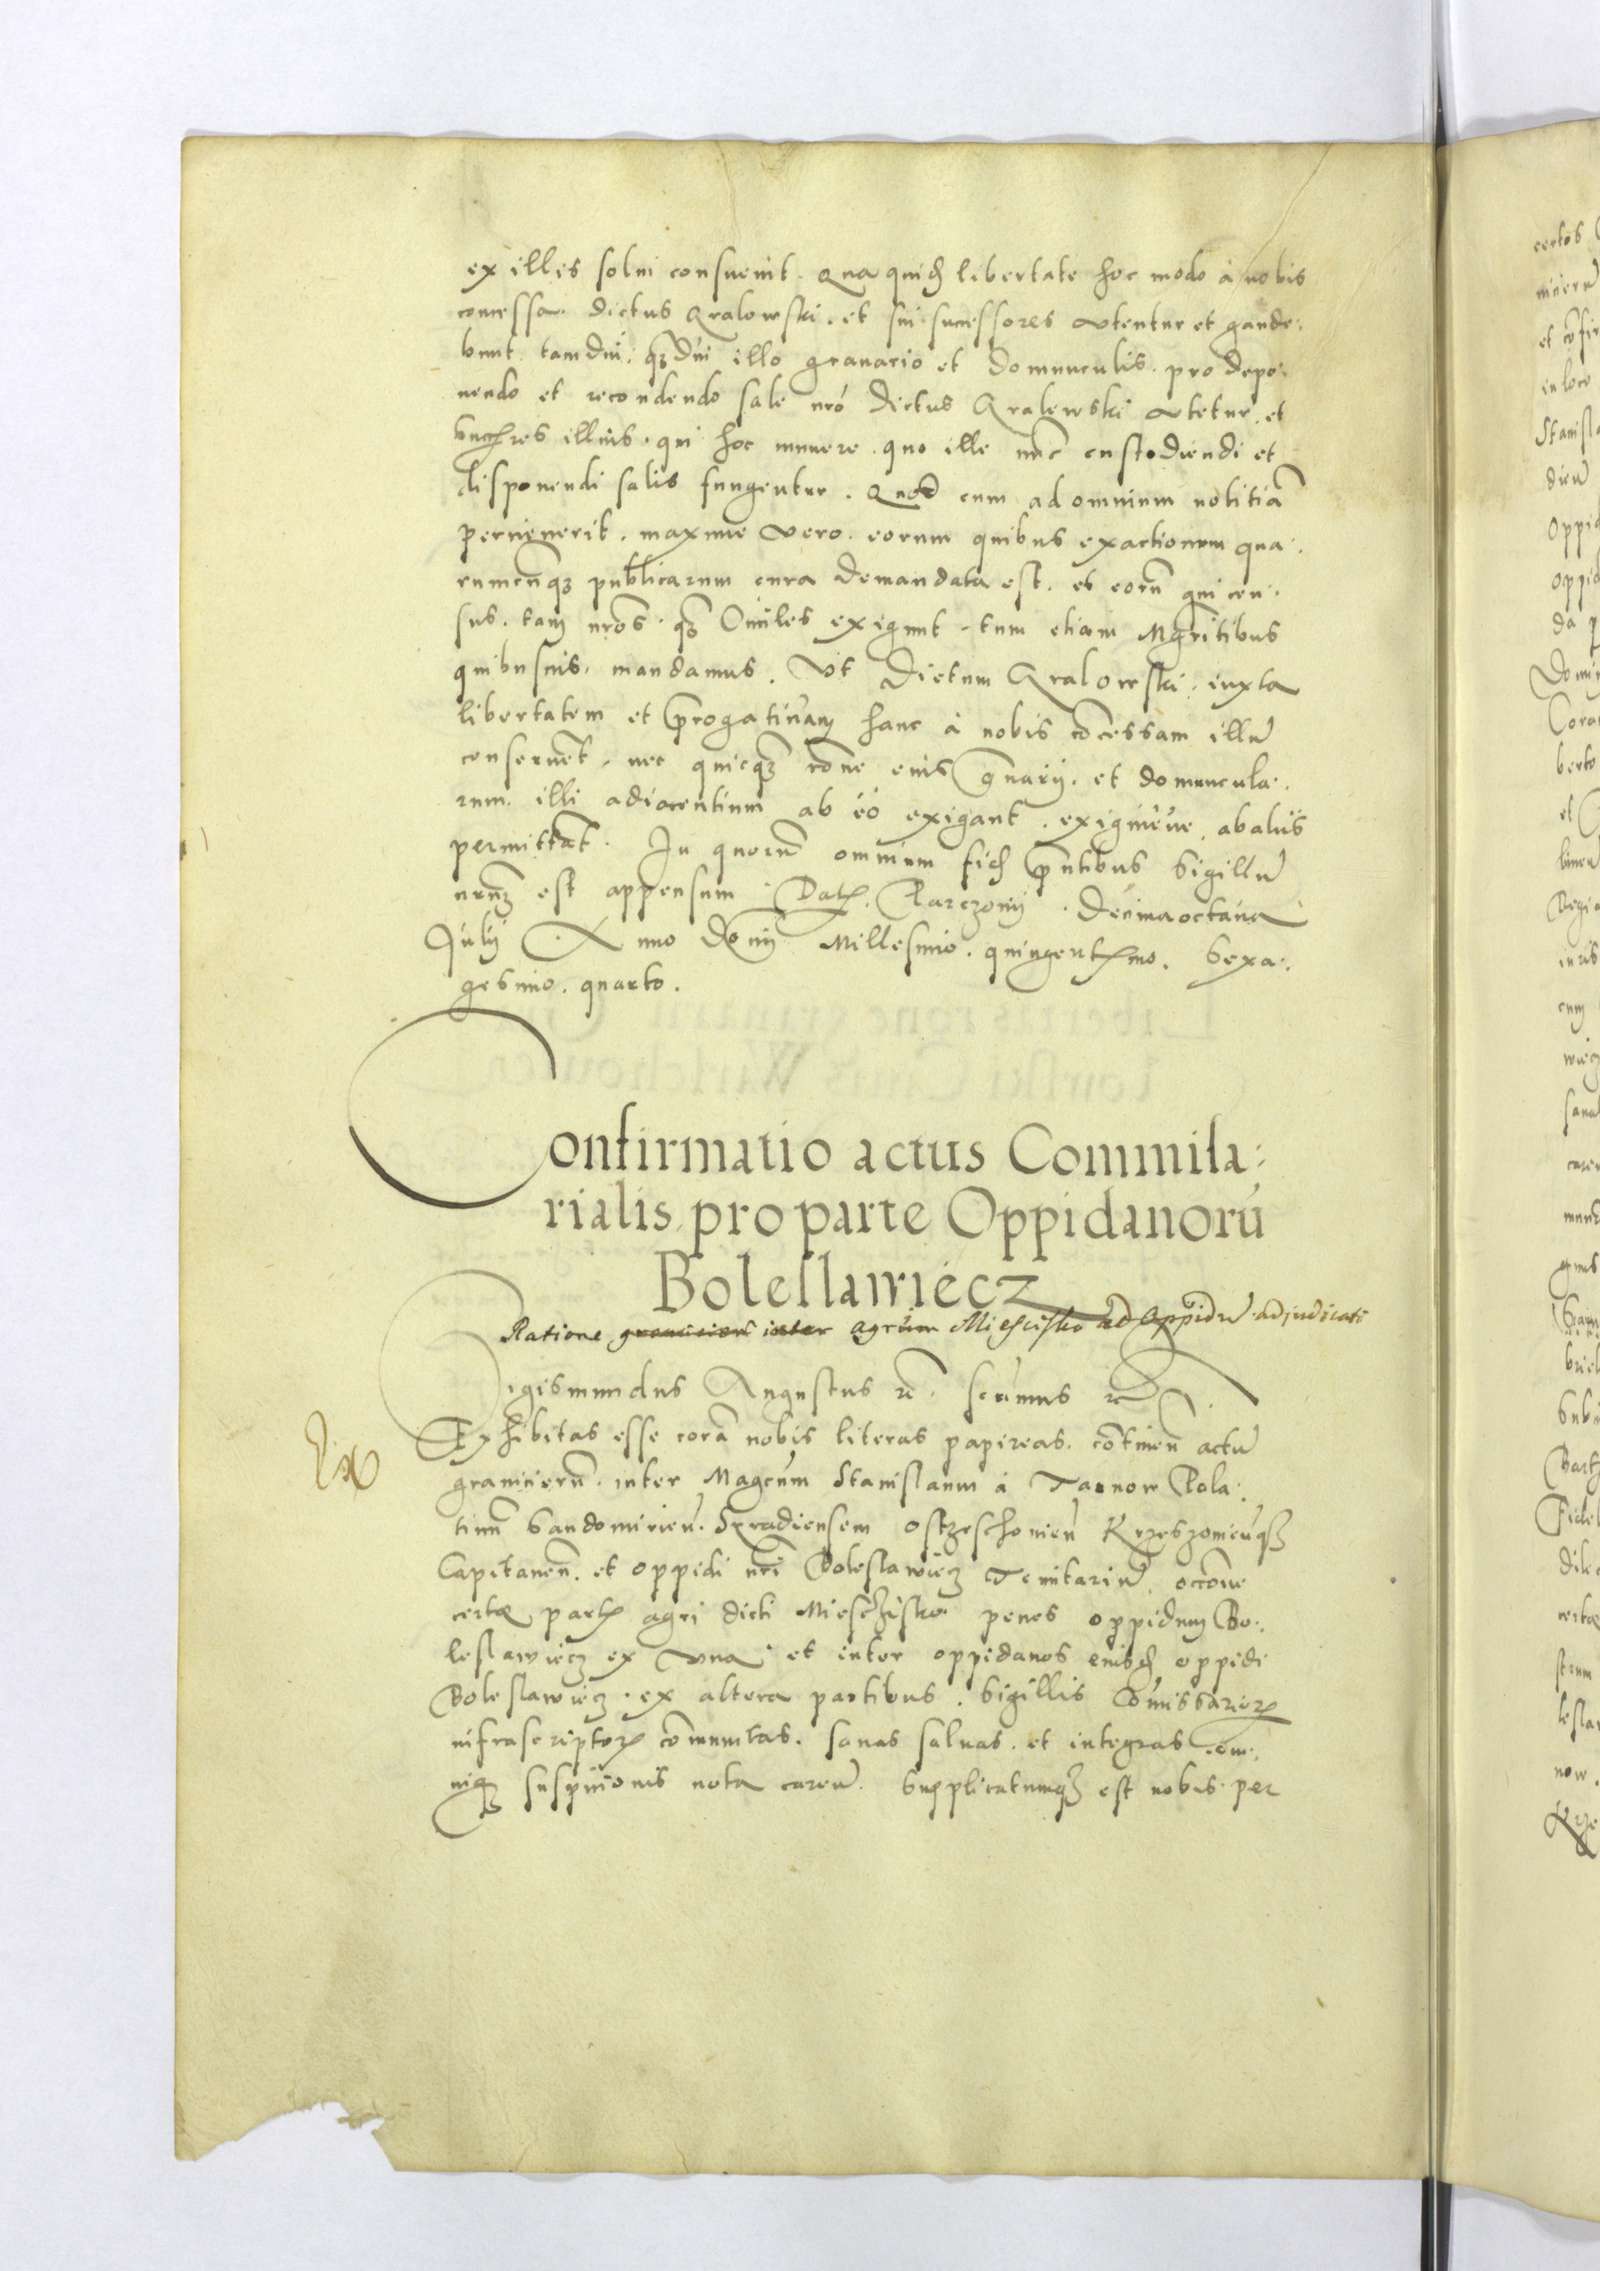 ex illis solui consueuit. Qua quid libertate hoc modo à nobis
concessa. dictus Gralowski. et sui successores vtentur et gaude.
bunt. tamdiu. qdiu illo granario et domunculis. pro depo.
nendo et recondendo sale nro dictus Gralewski vtetur. et
illius. qui hoc munere. quo ille nuc custodiendi et
disponendi salis fungentur. Quod cum ad omnium notitiã
peruenerit. maxime vero. eorum quibus exactionum qua.
rumcunqz publicarum cura demandata est. et eorũ qui cen.
sus. tam nros. qz Ciuiles exigunt. tum etiam Mgrtibus
quibusuis. mandamus. Vt dictum Gralowski. iuxta
libertatem et progatiuam hanc à nobis cõcessam illũ
conseruẽt. nec quicqz rõne eius grnarij. et domuncula.
rum. illi adiacentium ab eo exigant. exigiueue. ab aliis
permittãt. In quorũ omnium fid pntibus Sigillũ
nrũz est appensum. Dat. Parczouij. Decimaoctaua
Julij Anno Domi Millesimo. quingentmo. Sexa.
gesimo. quarto.
Confirmatio actus Commissa.
rialis pro parte Oppidanorũ
Boleslawiecz
Ratione graniciẽrũ inter agrum Miescisko ad Oppidũ adiudicati
Sigismundus Augustus rc. scimus rc
Exhibitas esse corã nobis literas papireas. cõtineñ actũ
granicierũ. inter Magcum Stanislaum à Tarnow Pala.
tinũ Sandomirieñ. Syradiensem Ostrzeschouieñ Krzeszouieñqz
Capitaneũ. et oppidi nri Boleslawiecz Tenutariũ. occõne
certæ part agri dicti Miesczisko penes oppidum Bo.
leslawiecz ex vna et inter oppidanos eiusd oppidi
Boleslawiecz. ex altera partibus. Sigillis Cõmissarior
infrascriptor cõmunitas. sanas saluas. et integras. om.
niqz suspicionis nota careñ. Supplicatumqz est nobis per